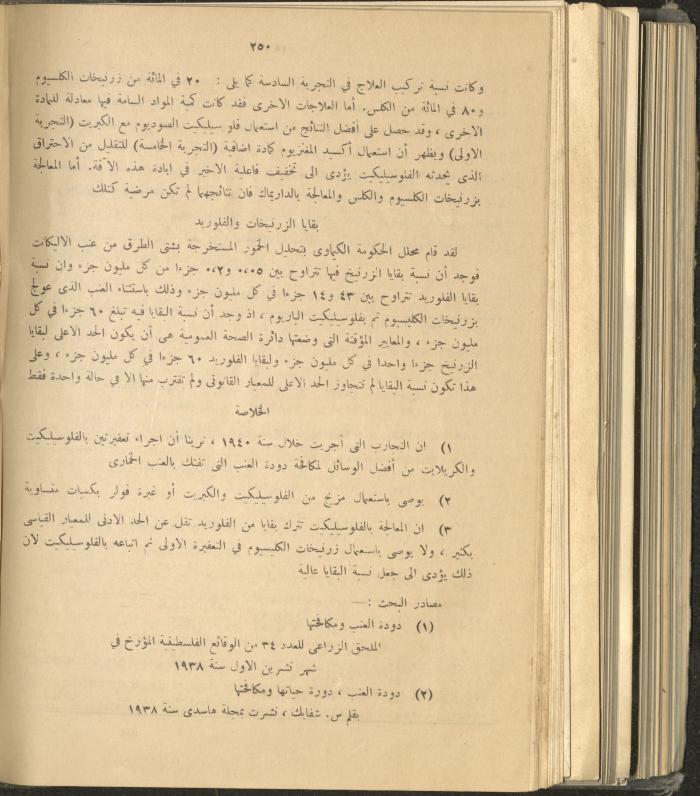 ٢٥٠
وكانت نسبة تركيب العلاج في التجربة السادسة كما يلى : ٢٠ في المائة من زرنيخات الكلسيوم
و٨٠ في المائة من الكلس. أما العلاجات الاخرى فقد كانت كمية المواد السامة فيها معادلة للمادة
الاخرى ، وقد حصل على أفضل النتائج من استعمال فلو سيليكيت الصوديوم مع الكبريت (التجربة
الاولى) ويظهر أن استعمال أكسيد المغنزيوم كمادة اضافية (التجربة الخامسة) للتقليل من الاحتراق
الذى يحدثه الفلوسيليكيت يؤدى الى تخفيف فاعلية الاخير في ابادة هذه الآفة. أما المعالجة
بزرنيخات الكلسيوم والكلس والمعالجة بالداريماك فان نتائجهما لم تكن مرضية كتلك
بقايا الزرنيخات والفلوريد
لقد قام محلل الحكومة الكيماوى بتحليل الخمور المستخرجة بشتى الطرق من عنب الاليكانت
فوجد أن نسبة بقايا الزرنيخ فيها تتراوح بين ٠،٠٥ و٠،٢ جزءا من كل مليون جزء وان نسبة
بقايا الفلوريد تتراوح بين ٤٣ و١٤ جزءا في كل مليون جزء وذلك باستثناء العنب الذى عولج
بزرنيخات الكلسيوم ثم بفلوسيليكيت الباريوم ، اذ وجد أن نسبة البقايا فيه تبلغ ٦٠ جزءا في كل
مليون جزء ، والمعايير المؤقتة التى وضعتها دائرة الصحة العمومية هى أن يكون الحد الاعلى لبقايا
الزرنيخ جزءا واحدا في كل مليون جزء ولبقايا الفلوريد ٦٠ جزءا في كل مليون جزء ، وعلى
هذا تكون نسبة البقايا لم تتجاوز الحد الاعلى للمعيار القانونى ولم تقترب منها الا في حالة واحدة فقط
الخلاصة
١) ان التجارب التى أجريت خلال سنة ١٩٤٠ ، ترينا أن اجراء تعفيرتين بالفلوسيليكيت
والكريلايت من أفضل الوسائل لمكافحة دودة العنب التى تفتك بالعنب الخمارى
٢) يوصى باستعمال مزيج من الفلوسيليكيت والكبريت أو غبرة فولر بكميات متساوية
٣) ان المعالجة بالفلوسيليكيت تترك بقايا من الفلوريد تقل عن الحد الادنى للمعيار القياسى
بكثير ، ولا يوصى باستعمال زرنيخات الكلسيوم في التعفيرة الاولى ثم اتباعه بالفلوسيليكيت لان
ذلك يؤدى الى جعل نسبة البقايا عالية
مصادر البحث :—
(١) دودة العنب ومكافحتها
الملحق الزراعى للعدد ٣٤ من الوقائع الفلسطينية المؤرخ في
شهر تشرين الاول سنة ١٩٣٨
(٢) دودة العنب ، دورة حياتها ومكافحتها
بقلم س. شفايك ، نشرت بمجلة هاسدى سنة ١٩٣٨